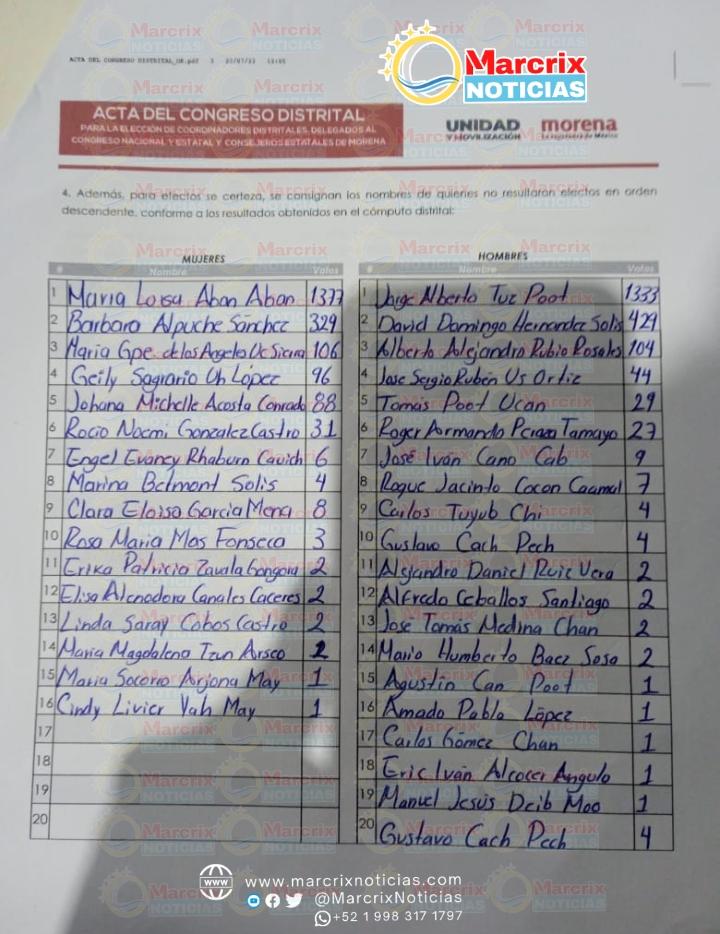 Marcrix
NOTICIAS
ACTA DEL CONGRESO DISTRITAL_OK.pdf 3
ACTA DEL CONGRESO DISTRITAL
PARA LA ELECCIÓN DE COORDINADORES DISTRITALES, DELEGADOS AL
CONGRESO NACIONAL Y ESTATAL Y CONSEJEROS ESTATALES DE MORENA
UNIDAD
Y MOVILIZACIÓN
morena
La esperanza de México
4. Además, para efectos se certeza, se consignan los nombres de quienes no resultaron electos en orden
descendente, conforme a los resultados obtenidos en el cómputo distrital:
MUJERES
# Nombre Votos
1 Maria Loisa Aban Aban 1377
2 Barbara Alpuche Sánchez 329
3 Maria Gpe de los Angeles Uc Sierra 106
4 Geily Sagrario Uh López 96
5 Johana Michelle Acosta Conrado 88
6 Rocio Noemi Gonzalez Castro 31
7 Engel Evaney Rhaburn Cauich 6
8 Marina Betmont Solis 4
9 Clara Eloisa Garcia Mena 8
10 Rosa Maria Mos Fonseca 3
11 Erika Patricia Zavala Gongora 2
12 Elisa Alenadora Canales Caceres 2
13 Linda Saray Cobos Castro 2
14 Maria Magdalena Tzun Arsco 2
15 Maria Socorro Arjona May 1
16 Cindy Livier Vah May 1
17
18
19
20
HOMBRES
# Nombre Votos
1 Jorge Alberto Tuz Poot 1333
2 David Domingo Hernandez Solis 429
3 Alberto Alejandro Rubio Rosales 104
4 Jose Sergio Rubén Us Ortiz 44
5 Tomás Poot Ucan 29
6 Roger Armando Peraza Tamayo 27
7 José Iván Cano Cab 9
8 Roque Jacinto Cocon Caamal 7
9 Carlos Tuyub Chi 4
10 Gustavo Cach Pech 4
11 Alejandro Daniel Ruiz Vera 2
12 Alfredo Ceballos Santiago 2
13 José Tomás Medina Chan 2
14 Mario Humberto Baez Sosa 2
15 Agustín Can Poot 1
16 Amado Pablo López 1
17 Carlos Gómez Chan 1
18 Eric Iván Alcocer Angulo 1
19 Manuel Jesús Dcib Moo 1
20 Gustavo Cach Pech 4
www.marcrixnoticias.com
@MarcrixNoticias
+52 1 998 317 1797